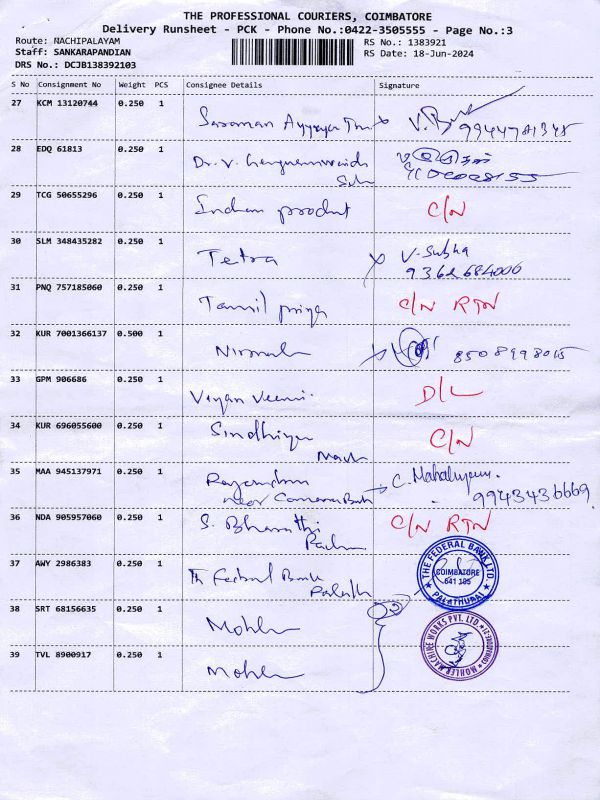 THE PROFESSIONAL COURIERS, COIMBATORE
Delivery Runsheet - PCK - Phone No.:0422-3505555 - Page No.:3
Route: NACHIPALAYAM RS No.: 1383921
Staff: SANKARAPANDIAN RS Date: 18-Jun-2024
DRS No.: DCJB138392103
S No Consignment No Weight PCS Consignee Details Signature
27 KCM 13120744 0.250 1
28 EDQ 61813 0.250 1 Dr. V.
29 TCG 50655296 0.250 1 Indian product C/N
30 SLM 348435282 0.250 1 Tetra V. Subha
9362684006
31 PNQ 757185060 0.250 1 Tamil priya C/N RTN
32 KUR 7001366137 0.500 1 8508998015
33 GPM 906686 0.250 1 D/L
34 KUR 696055600 0.250 1 Sindhiya C/N
35 MAA 945137971 0.250 1 C.
near Canara Bank 9943436669
36 NDA 905957060 0.250 1 S. Bharathi C/N RTN
37 AWY 2986383 0.250 1 The Federal Bank
THE FEDERAL BANK LTD.
COIMBATORE
641 105
PALATHURAI
38 SRT 68156635 0.250 1 Mohler
MOHLER MACHINE WORKS PVT. LTD.
39 TVL 8900917 0.250 1 Mohler